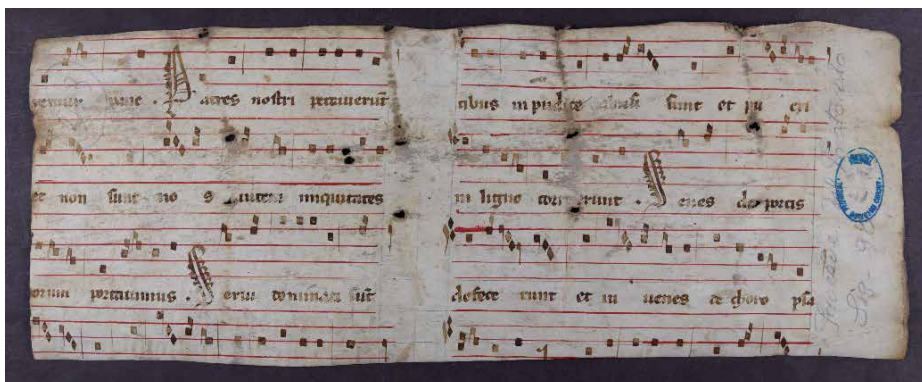 Patres nostri peccauerūt
et non sunt no s autem iniquitates
eorum portauimus . Serui dominati sūt
tibus inpudice abusi sunt et pu eri
in ligno corruerunt . Senes de portis
defece runt et iu uenes de choro psa